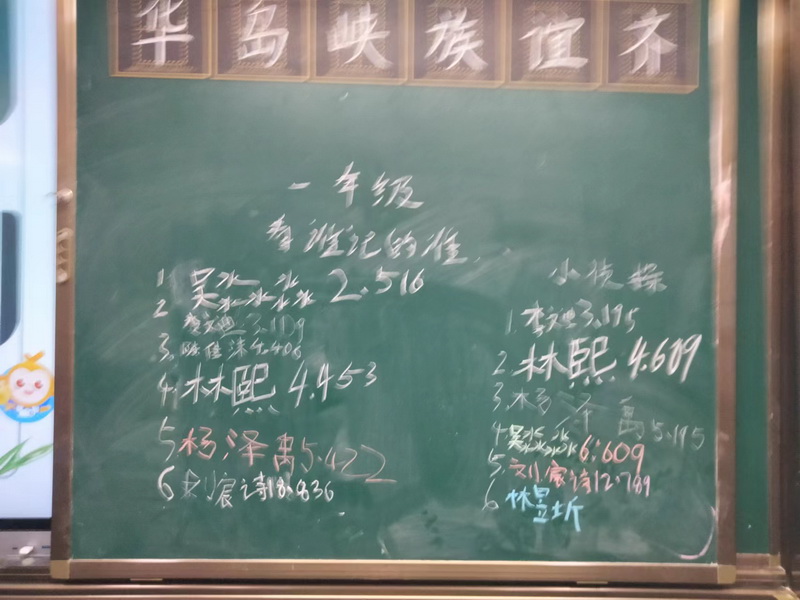 华岛峡族谊齐
一年级
看谁记的准...
1. 吴 2.516
2 李文迪 3.119
3. 陈佳沫 4.406
4. 林熙 4.453
5 杨泽禹 5.422
6 刘宸诗 18.836
小侦探
1. 李文迪 3.195
2. 林熙 4.609
3. 杨泽禹 5.195
4. 吴 6.609
5. 刘宸诗 12.789
6 林昱圻